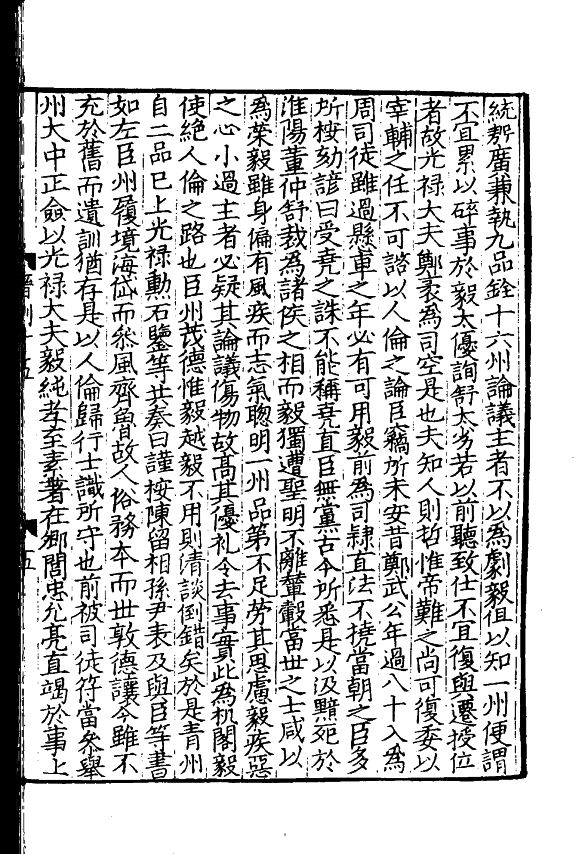 統殷廣兼執九品銓十六州論議主者不以為劇毅但以知一州便謂
不宜累以碎事於毅太優詢舒太劣若以前聽致仕不宜復與遷授位
者故光禄大夫鄭袤為司空是也夫知人則哲惟帝難之尚可復委以
宰輔之任不可諮以人倫之論臣竊所未安昔鄭武公年過八十入為
周司徒雖過懸車之年必有可用毅前為司隷直法不撓當朝之臣多
所桉劾諺曰受堯之誅不能稱堯直臣無黨古今所悉是以汲黯死於
淮陽董仲舒裁為諸侯之相而毅獨遭聖明不離輦轂當世之士咸以
為榮毅雖身偏有風疾而志氣聦明一州品第不足勞其思慮毅疾惡
之心小過主者必疑其論議傷物故髙其優礼令去事實此為机閣毅
使絶人倫之路也臣州茂德惟毅越毅不用則清談倒錯矣於是青州
自二品已上光禄勲石鑒等共奏曰謹桉陳留相孫尹表及與臣等書
如左臣州履境海岱而叅風齊魯故人俗務本而世敦德讓今雖不
充於舊而遺訓猶存是以人倫歸行士識所守也前被司徒符當叅舉
州大中正僉以光禄大夫毅純孝至素著在郷閭忠允亮直竭於事上